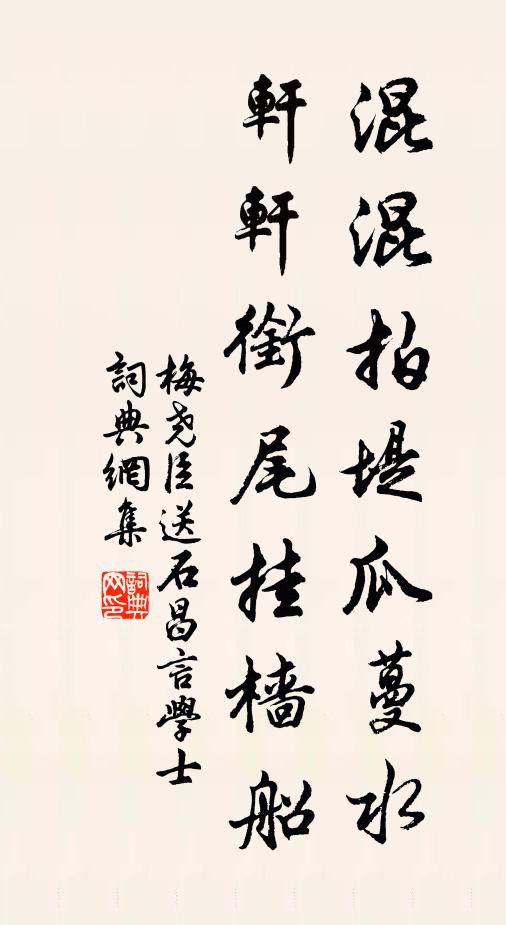 混混拍堤瓜蔓水
軒軒銜尾挂檣船
梅尧臣送石昌言學士
詞典網集
詞典网印